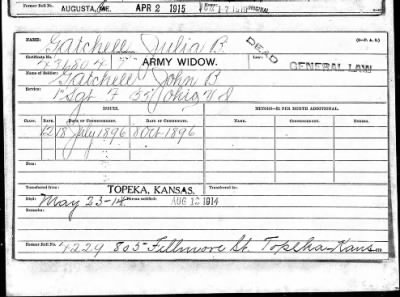 Former Roll No. AUGUSTA, ME. APR 2 1915
NAME: Gatchell Julia R. DEAD (O-P. A. S.)
Certificate No. ARMY WIDOW. Law: GENERAL LAW
Name of Soldier: Gatchell John R
Service: 1" Sgt F 35" Ohio
ISSUES. MINORS—$2 PER MONTH ADDITIONAL.
CLASS. RATE. DATE OF COMMENCEMENT. DATE OF CERTIFICATE. DATE OF COMMENCEMENT.
12 18 July 1896 8 Oct 1896
Transferred from TOPEKA, KANSAS. Transferred to
Died: May 23-14. Bureau notified: AUG 12 1914
Remarks:
Former Roll No. 4229 805 Fillmore St. Topeka Kans